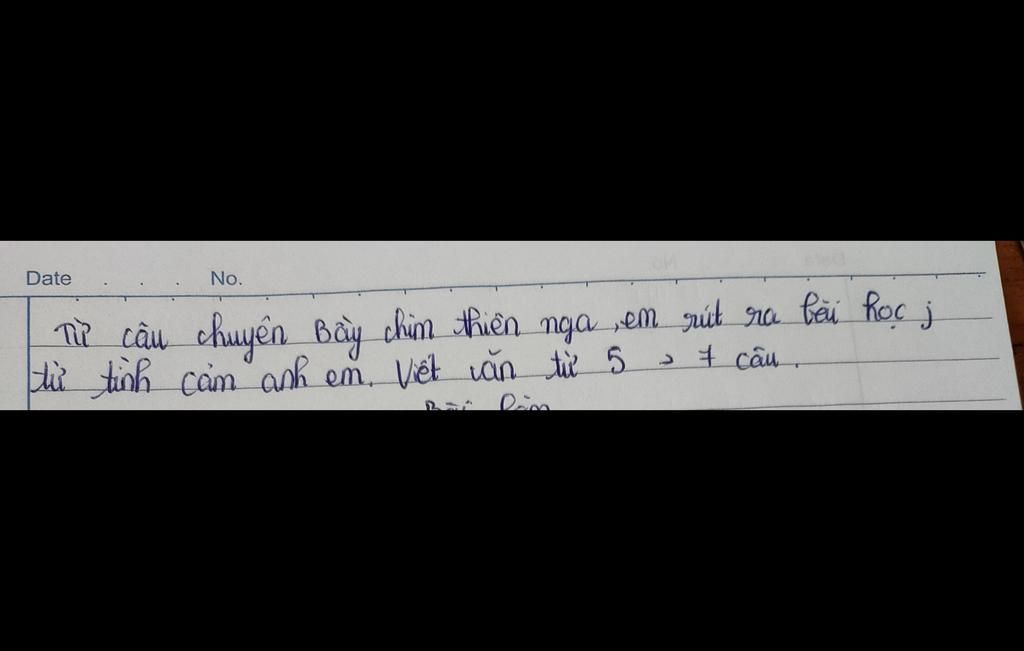 Date . . . No.
Từ câu chuyên Bầy chim thiên nga, em rút ra bài học j
từ tình cảm anh em. Viết văn từ 5 → 7 câu.